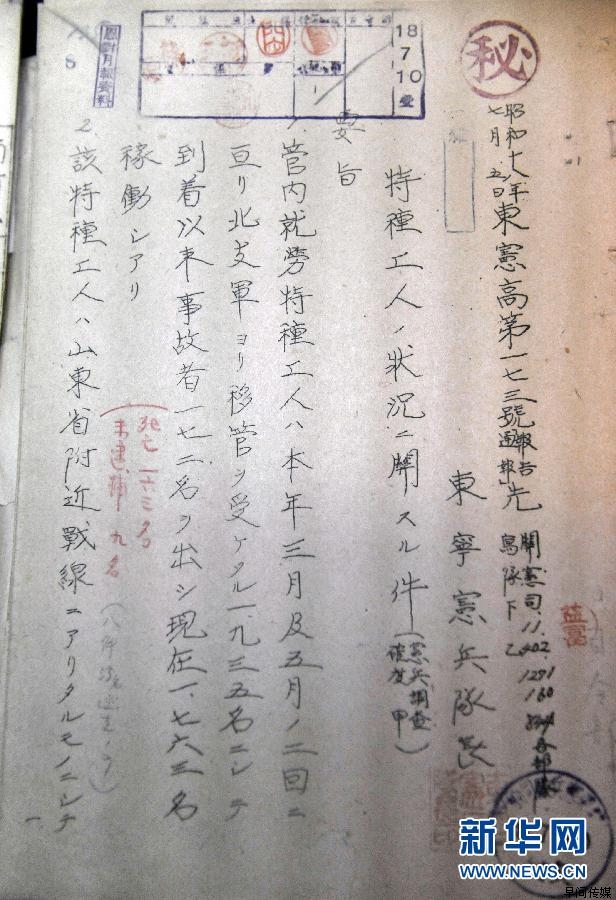 秘
18
7
10
思對月報資料
昭和十八年
七月五日
東憲高第一七三號
報告
通報
先
關憲司、
隊下
東寧憲兵隊長
特種工人ノ狀況ニ關スル件(憲兵調査
確度甲)
要旨
1、管内就勞特種工人ハ本年三月及五月ノ二回ニ
亘リ北支軍ヨリ移管ヲ受ケタル一、九三五名ニシテ
到着以来事故者一七二名ヲ出シ現在一、七六三名
稼働シアリ
死亡一六三名
未逮捕九名
2、該特種工人ハ山東省附近戰線ニアリタルモノニシテ
新华网
WWW.NEWS.CN
早间传媒